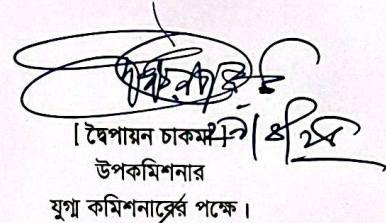 [ দ্বৈপায়ন চাকমা ]
উপকমিশনার
যুগ্ম কমিশনারের পক্ষে।